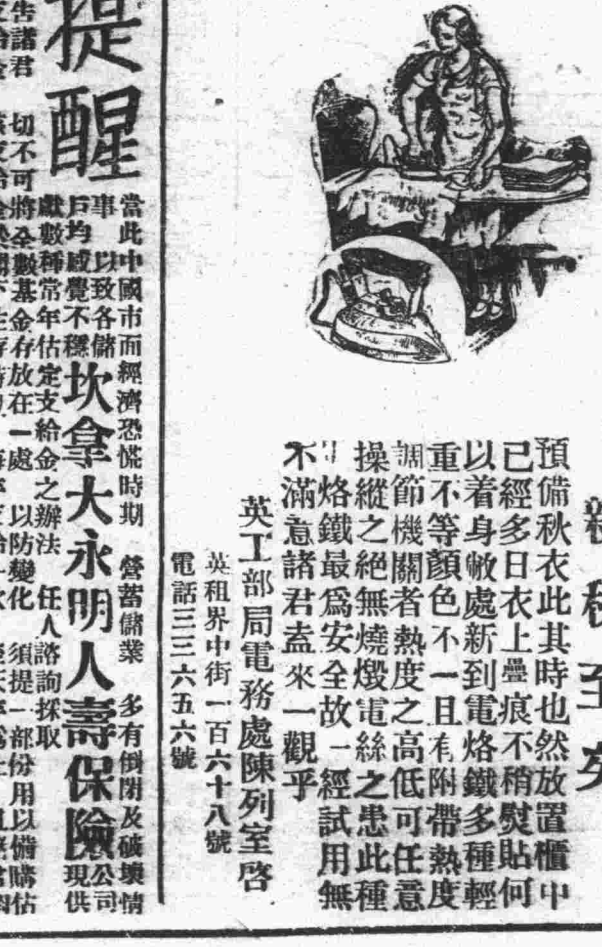 新秋至矣
預備秋衣此其時也然放置櫃中
已經多日衣上疊痕不稍熨貼何
以着身敝處新到電烙鐵多種輕
重不等顏色不一且有附帶熱度
調節機關者熱度之高低可任意
操縱之絕無燒燬電絲之患此種
烙鐵最爲安全故一經試用無
不滿意諸君盍來一觀乎
英工部局電務處陳列室啓
英租界中街一百六十八號
電話三三六五六號
提醒
當此中國市面經濟恐慌時期 營蓄儲業 多有倒閉及破壞情
事 以致各儲
戶均感覺不穩
坎拿大永明人壽保險
公司
現供
獻數種常年估定支給金之辦法 任人諮詢採取
告諸君 切不可將全數基金存放在一處 以防變化 須提一部份用以備購估